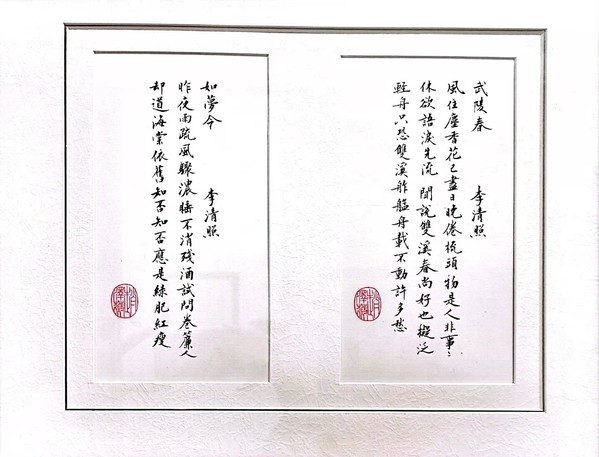 武陵春 李清照
風住塵香花已盡日晚倦梳頭物是人非事〻
休欲語淚先流 聞說雙溪春尚好也擬泛
輕舟只恐雙溪舴艋舟載不動許多愁
如夢令 李清照
昨夜雨疏風驟濃睡不消殘酒試問卷簾人
却道海棠依舊知否知否應是綠肥紅瘦